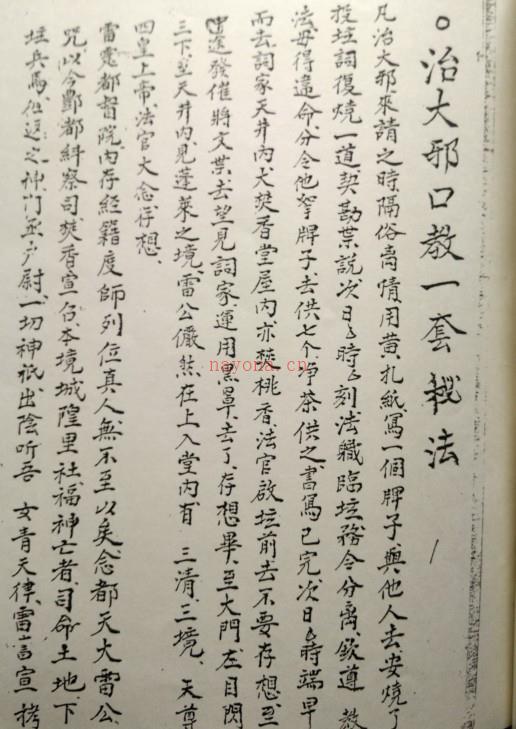 治大邪口教一套秘法
凡治大邪來請之時隔俗离情用黄扎紙寫一個牌子與他人去安燒了
投坛詞復燒一道契勘葉說次日時時刻法職臨坛務令分离欽遵 教
法毋得違命分令他拏牌子去供七个净茶供之書寫已完次日時端早
而去詞家天井内大焚香堂屋内亦焚桃香法官啟坛前去不要存想至
中途發催將文葉去望見詞家運用黑罩去了存想畢至大門左目閃
三下至天井内見蓬萊之境雷公儼然在上入堂内有 三清三境 天尊
四皇上帝法官大念存想
雷霆都督院内存經籍度師列位真人無不至以矣念都天大雷公
咒以今酆都糾察司焚香宣召本境城隍里社福神亡者司命土地下
坛兵馬 之神門丞户尉一切神祇出陰听吾 女青天律雷言宣拷
nayona.cn